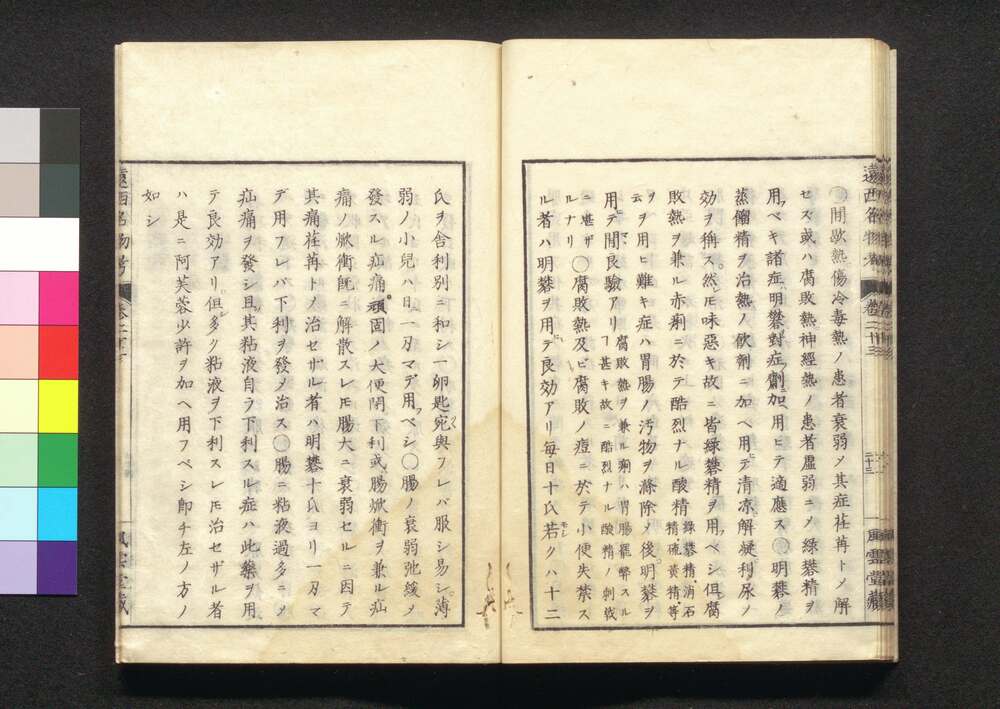 遠西名物考 卷二十三
二十三
風雲堂藏
〇間歇熱傷冷毒熱ノ患者衰弱〆其症荏苒ト〆解
セス或ハ腐敗熱神經熱ノ患者虚弱ニ〆綠礬精ヲ
用フベキ諸症明礬對症劑ニ加ヘ用ヒテ適應ス〇明礬ノ
蒸餾精ヲ治熱ノ飲劑ニ加ヘ用ヒテ清涼解凝利尿ノ
効ヲ稱ス然レ𪜈味惡キ故ニ皆綠礬精ヲ用フベシ但腐
敗熱ヲ兼ル赤痢ニ於テ酷烈ナル酸精綠礬精消石精硫黄精等
ヲ云ヲ用ヒ難キ症ハ胃腸ノ汚物ヲ滌除〆後明礬ヲ
用テ間良驗アリ腐敗熱ヲ兼ル痢ハ胃腸羅弊スルヿ甚キ故ニ酷烈ナル酸精ノ刺戟
ニ堪ザルナリ〇腐敗熱及ビ腐敗ノ痘ニ於テ小便失禁ス
ル者ハ明礬ヲ用テ良効アリ毎日十氏若クハ十二
氏ヲ舎利別ニ和シ一卵匙宛與フレバ服シ易シ薄
弱ノ小兒ハ日一刃マデ用フベシ〇腸ノ衰弱弛緩〆
發スル疝痛頑固ノ大便閉下利或腸焮衝ヲ兼ル疝
痛ノ焮衝既ニ解散スレ𪜈腸大ニ衰弱セルニ因テ
其痛荏苒ト〆治セザル者ハ明礬十氏ヨリ一刃マ
デ用フレバ下利ヲ發〆治ス〇腸ニ粘液過多ニ〆
疝痛ヲ發シ且其粘液自ラ下利スル症ハ此藥ヲ用
テ良効アリ但多ク粘液ヲ下利スレ𪜈治セザル者
ハ是ニ阿芙蓉少許ヲ加ヘ用フベシ即チ左ノ方ノ
如シ
遠西名物考